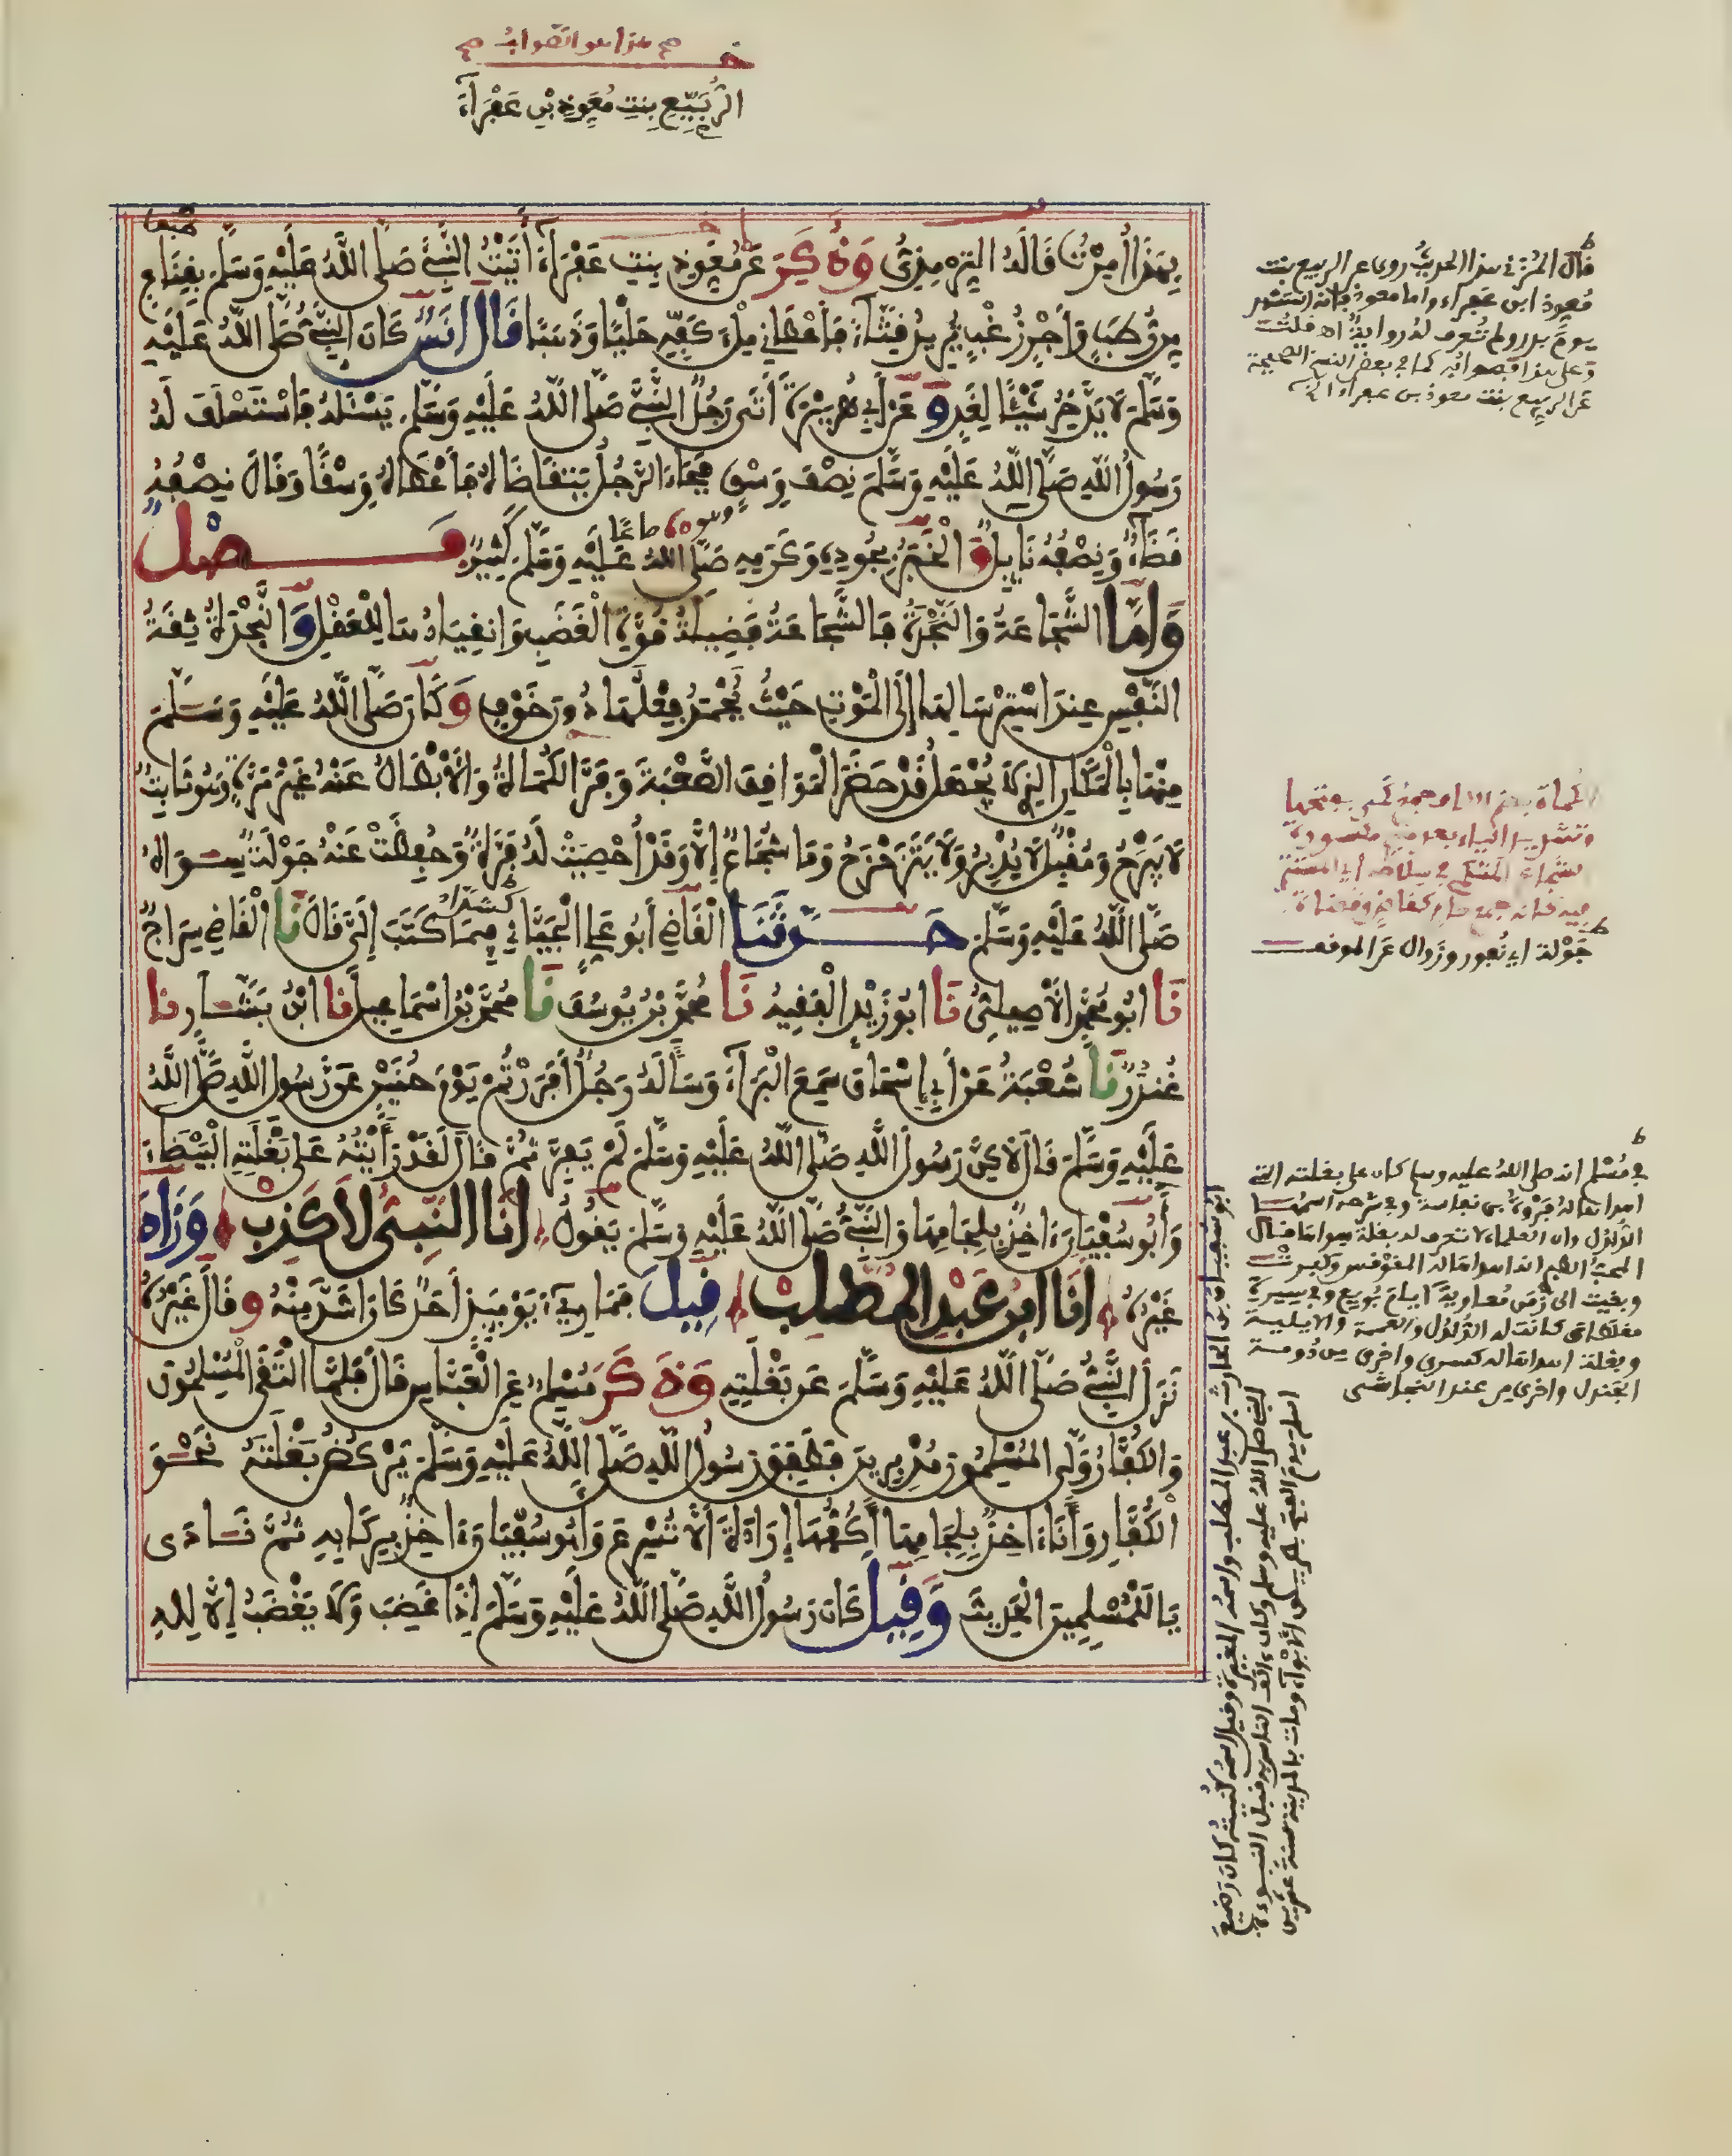 هذا هو الصواب
الرُّبَيِّعِ بِنْتِ مُعَوِّذِ بْنِ عَفْرَاءَ
بِهَذَا أُمِرْتُ قَالَهُ التِّرْمِذِيُّ وَذُكِرَ عَنْ مُعَوِّذِ بِنْتِ عَفْرَاءَ أَتَيْتُ النَّبِيَّ صَلَّى اللَّهُ عَلَيْهِ وَسَلَّمَ بِقِنَاعٍ
مِنْ رُطَبٍ وَأَجْرٍ زُغْبٍ يُرِيدُ قِثَّاءً فَأَعْطَانِي مِلْءَ كَفِّهِ حَلْيًا وَذَهَبًا قَالَ أَنَسٌ كَانَ النَّبِيُّ صَلَّى اللَّهُ عَلَيْهِ
وَسَلَّمَ لَا يَدَّخِرُ شَيْئًا لِغَدٍ وَعَنْ أَبِي هُرَيْرَةَ أَتَى رَجُلٌ النَّبِيَّ صَلَّى اللَّهُ عَلَيْهِ وَسَلَّمَ يَسْئَلُهُ فَاسْتَسْلَفَ لَهُ
رَسُولُ اللَّهِ صَلَّى اللَّهُ عَلَيْهِ وَسَلَّمَ نِصْفَ وَسْقٍ فَجَاءَ الرَّجُلُ يَتَقَاضَاهُ فَأَعْطَاهُ وَسْقًا وَقَالَ نِصْفُهُ
قَضَاءٌ وَنِصْفُهُ نَايِلٌ وَالْخَبَرُ بِجُودِهِ وَكَرَمِهِ صَلَّى اللَّهُ عَلَيْهِ وَسَلَّمَ كَثِيرٌ فَصْلٌ
وَأَمَّا الشَّجَاعَةُ وَالنَّجْدَةُ فَالشَّجَاعَةُ فَضِيلَةُ قُوَّةِ الْغَضَبِ وَانْقِيَادُهَا لِلْعَقْلِ وَالنَّجْدَةُ ثِقَةُ
النَّفْسِ عِنْدَ اسْتِرْسَالِهَا إِلَى الْمَوْتِ حَيْثُ يُحْمَدُ فِعْلُهَا دُونَ خَوْفٍ وَكَانَ صَلَّى اللَّهُ عَلَيْهِ وَسَلَّمَ
مِنْهَا بِالْمَكَانِ الَّذِي لَا يُجْهَلُ قَدْ حَضَرَ الْمَوَاقِفَ الصَّعْبَةَ وَفَرَّ الْكُمَاةُ وَالْأَبْطَالُ عَنْهُ غَيْرَ مَرَّةٍ وَهُوَ ثَابِتٌ
لَا يَبْرَحُ وَمُقْبِلٌ لَا يُدْبِرُ وَلَا يَتَزَحْزَحُ وَمَا شُجَاعٌ إِلَّا وَقَدْ أُحْصِيَتْ لَهُ فَرَّةٌ وَحُفِظَتْ عَنْهُ جَوْلَةٌ سِوَاهُ
صَلَّى اللَّهُ عَلَيْهِ وَسَلَّمَ حَدَّثَنَا الْقَاضِي أَبُو عَلِيٍّ الْجَيَّانِي فِيمَا كَتَبَ إِلَيَّ قَالَ نَا الْقَاضِي سِرَاجٌ
نَا أَبُو مُحَمَّدٍ الْأَصِيلِيُّ نَا أَبُو زَيْدٍ الْفَقِيهُ نَا مُحَمَّدُ بْنُ يُوسُفَ نَا مُحَمَّدُ بْنُ إِسْمَاعِيلَ نَا ابْنُ بَشَّارٍ نَا
غُنْدَرٌ نَا شُعْبَةُ عَنْ أَبِي إِسْحَاقَ سَمِعَ الْبَرَاءَ وَسَأَلَهُ رَجُلٌ أَفَرَرْتُمْ يَوْمَ حُنَيْنٍ عَنْ رَسُولِ اللَّهِ صَلَّى اللَّهُ
عَلَيْهِ وَسَلَّمَ قَالَ لَكِنَّ رَسُولَ اللَّهِ صَلَّى اللَّهُ عَلَيْهِ وَسَلَّمَ لَمْ يَفِرَّ ثُمَّ قَالَ لَقَدْ رَأَيْتُهُ عَلَى بَغْلَتِهِ الْبَيْضَاءَ
وَأَبُو سُفْيَانَ ءَاخِذٌ بِلِجَامِهَا وَالنَّبِيُّ صَلَّى اللَّهُ عَلَيْهِ وَسَلَّمَ يَقُولُ أَنَا النَّبِيُّ لَا كَذِبْ وَزَادَ
غَيْرُهُ أَنَا ابْنُ عَبْدِ الْمُطَّلِبْ قِيلَ فَمَا رِيءَ يَوْمَئِذٍ أَحَدٌ كَانَ أَشَدَّ مِنْهُ وَقَالَ غَيْرُهُ
نَزَلَ النَّبِيُّ صَلَّى اللَّهُ عَلَيْهِ وَسَلَّمَ عَنْ بَغْلَتِهِ وَذَكَرَ مُسْلِمٌ عَنِ الْعَبَّاسِ قَالَ فَلَمَّا الْتَقَى الْمُسْلِمُونَ
وَالْكُفَّارُ وَلَّى الْمُسْلِمُونَ مُدْبِرِينَ فَطَفِقَ رَسُولُ اللَّهِ صَلَّى اللَّهُ عَلَيْهِ وَسَلَّمَ يَرْكُضُ بَغْلَتَهُ نَحْوَ
الْكُفَّارِ وَأَنَا ءَاخِذٌ بِلِجَامِهَا أَكُفُّهَا إِرَادَةَ أَلَّا تُسْرِعَ وَأَبُو سُفْيَانَ ءَاخِذٌ بِرِكَابِهِ ثُمَّ نَادَى
يَا لَلْمُسْلِمِينَ الْحَدِيثَ وَقِيلَ كَانَ رَسُولُ اللَّهِ صَلَّى اللَّهُ عَلَيْهِ وَسَلَّمَ إِذَا غَضِبَ وَلَا يَغْضَبُ إِلَّا لِلَّهِ
قال المزني هذا الحديث روي عن الربيع بنت
معوذ ابن عفراء واما معوذ فانه استشهد
يوم بدر ولم تُعرف له رواية اه قلت
وعلى هذا فصوابه كما في بعض النسخ الصحيحة
عن الربيع بنت معوذ بن عفراء
جَوْلة اي نفور وزوال عن الموقف
في مُسْلم انه صلى الله عليه وسلم كان على بغلته التي
اهداها له فَرْوَةُ بن نفاثة وفي شرحه اسمها
الدُلدُل وان العلماء لا تعرف له بغلة سواها قال
المحبُّ الطبري اهداها له المقوقس وكبرت
وبقيت الى زمن معاوية
وبغلة اهداها له كسرى واخرى من دومة
الجندل واخرى من عند النجاشي
ابو سفيان بن الحارث بن عبد المطلب واسمه المغيرة وقيل اسمه كنيته كان رضيع
النبي صلى الله عليه وسلم وكان ءالف الناس به قبل النبوءة
اسلم يوم الفتح بطريق الأبواء ومات بالمدينة سنة عشرين